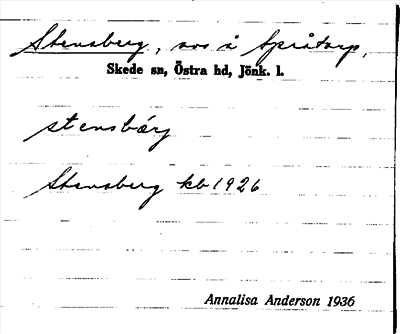 Stensberg, sos å Språtorp,
Skede sn, Östra hd, Jönk. l.
stensbárj
Stensberg kb 1926
Annalisa Anderson 1936